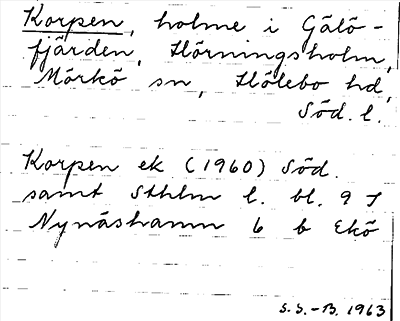 Korpen, holme i Gälö-
fjärden, Hörningsholm,
Mörkö sn, Hölebo hd,
Söd. l.
Korpen ek (1960) Söd.
samt Sthlm l. bl. 9 I
Nynäshamn 6 b Ekö
S.S.-B. 1963